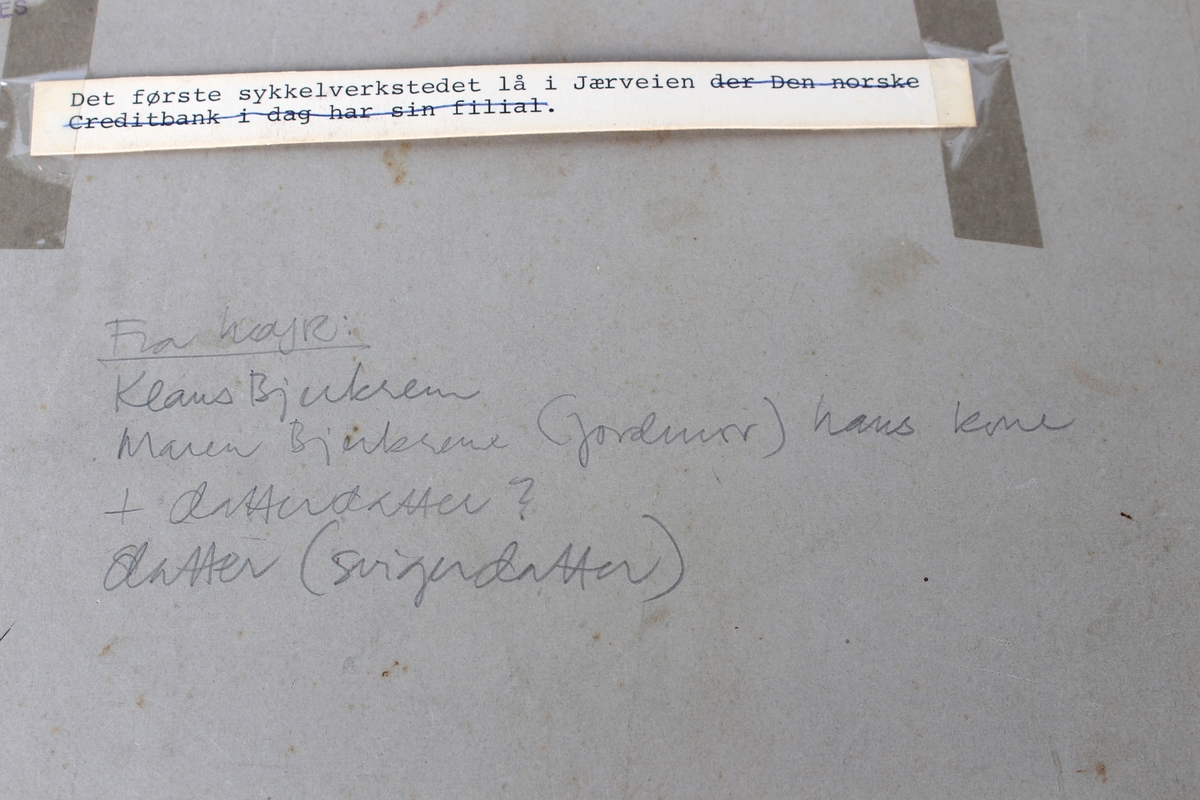 ES
Det første sykkelverkstedet lå i Jærveien der Den norske
Creditbank i dag har sin filial.
Fra høyre:
Klaus Bjerkrem
Maren Bjerkreim (Jordmor) hans kone
+ datterdatter?
datter (svigerdatter)